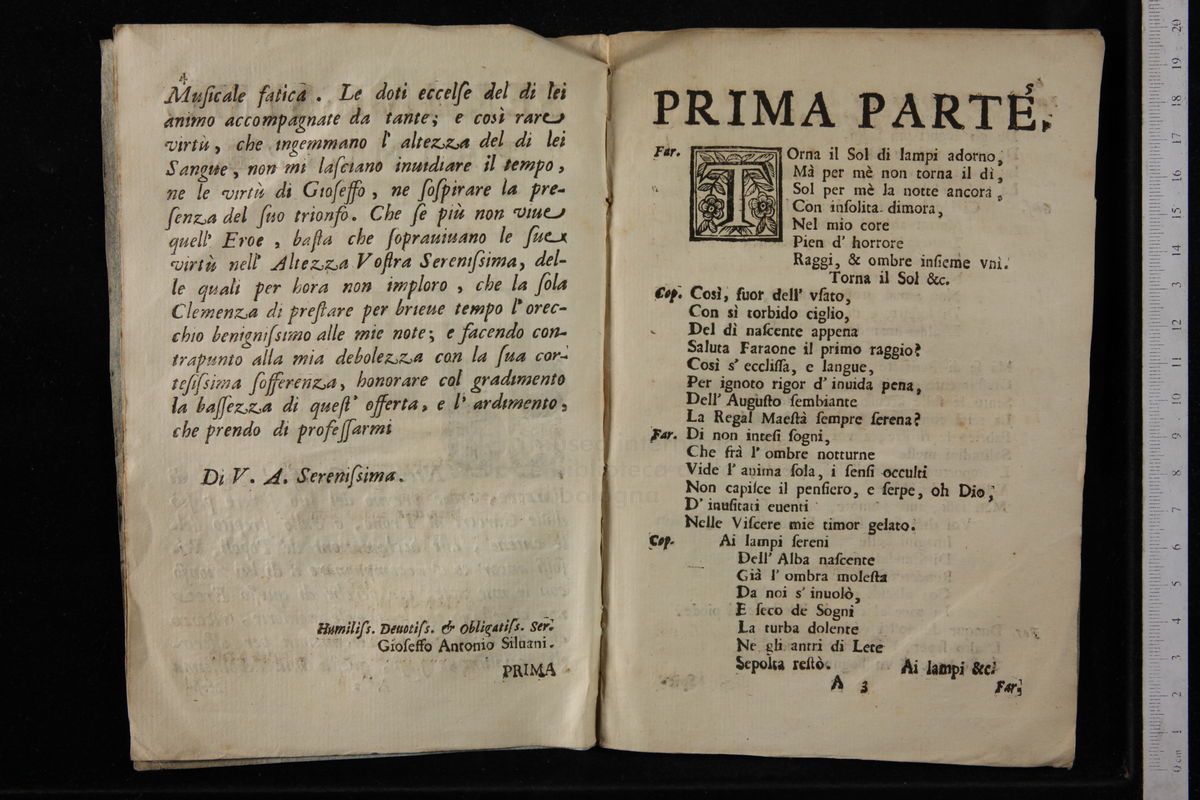 4
Muſicale fatica. Le doti eccelſe del di lei
animo accompagnate da tante; e così rare
virtù, che ingemmano l' altezza del di lei
Sangue, non mi laſciano inuidiare il tempo,
ne le virtù di Gioſeffo, ne ſoſpirare la pre-
ſenza del ſuo trionfo. Che ſe più non viue
quell' Eroe, baſta che ſoprauiuano le ſue
virtù nell' Altezza Voſtra Sereniſsima, del-
le quali per hora non imploro, che la ſola
Clemenza di preſtare per brieue tempo l' orec-
chio benigniſsimo alle mie note; e facendo con-
trapunto alla mia debolezza con la ſua cor-
teſiſsima ſofferenza, honorare col gradimento
la baſſezza di queſt' offerta, e l' ardimento,
che prendo di profeſſarmi
Di V. A. Sereniſsima.
Humiliſs. Deuotiſs. & Obligatiſs. Ser.
Gioſeffo Antonio Siluani.
PRIMA
5
PRIMA PARTE.
Far. TOrna il Sol di lampi adorno,
Mà per mè non torna il dì,
Sol per mè la notte ancora,
Con inſolita dimora,
Nel mio core
Pien d' horrore
Raggi, & ombre inſieme vnì.
Torna il Sol &c.
Cop. Così, fuor dell' vſato,
Con sì torbido ciglio,
Del dì naſcente appena
Saluta Faraone il primo raggio?
Così s' eccliſſa, e langue,
Per ignoto rigor d' inuida pena,
Dell' Auguſto ſembiante
La Regal Maeſtà ſempre ſerena?
Far. Di non inteſi ſogni,
Che frà l' ombre notturne
Vide l' anima ſola, i ſenſi occulti
Non capiſce il penſiero, e ſerpe, oh Dio,
D' inuſitati euenti
Nelle Viſcere mie timor gelato.
Cop. Ai lampi ſereni
Dell' Alba naſcente
Già l' ombra moleſta
Da noi s' inuolò,
E ſeco de Sogni
La turba dolente
Ne gli antri di Lete
Sepolta reſtò. Ai lampi &c.
A 3 Far.